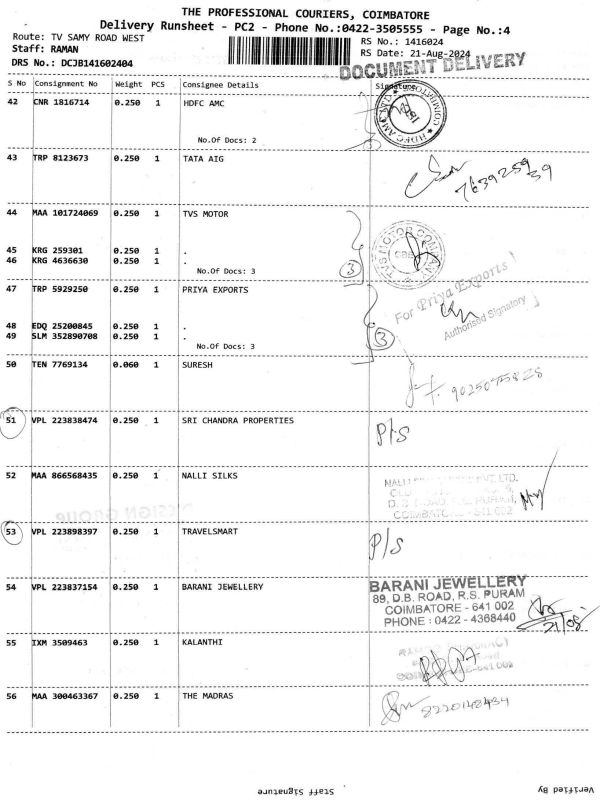 THE PROFESSIONAL COURIERS, COIMBATORE
Delivery Runsheet - PC2 - Phone No.:0422-3505555 - Page No.:4
Route: TV SAMY ROAD WEST
Staff: RAMAN
DRS No.: DCJB141602404
RS No.: 1416024
RS Date: 21-Aug-2024
DOCUMENT DELIVERY
S No Consignment No Weight PCS Consignee Details Signature
42 CNR 1816714 0.250 1 HDFC AMC
No.Of Docs: 2
HDFC AMC
43 TRP 8123673 0.250 1 TATA AIG
7639259 39
44 MAA 101724069 0.250 1 TVS MOTOR
45 KRG 259301 0.250 1 .
46 KRG 4636630 0.250 1 .
No.Of Docs: 3
3
TVS MOTOR COMPANY
47 TRP 5929250 0.250 1 PRIYA EXPORTS
For Priya Exports
Authorised Signatory
48 EDQ 25200845 0.250 1 .
49 SLM 352890708 0.250 1 .
No.Of Docs: 3
3
50 TEN 7769134 0.060 1 SURESH
9025075828
51 VPL 223838474 0.250 1 SRI CHANDRA PROPERTIES
P/S
52 MAA 866568435 0.250 1 NALLI SILKS
COIMBATORE - 641 002
DESIGN GROUP
53 VPL 223898397 0.250 1 TRAVELSMART
P/S
54 VPL 223837154 0.250 1 BARANI JEWELLERY
BARANI JEWELLERY
89, D.B. ROAD, R.S. PURAM
COIMBATORE - 641 002
PHONE : 0422 - 4368440
21/08
55 IXM 3509463 0.250 1 KALANTHI
56 MAA 300463367 0.250 1 THE MADRAS
8220148434
Staff Signature
Verified By